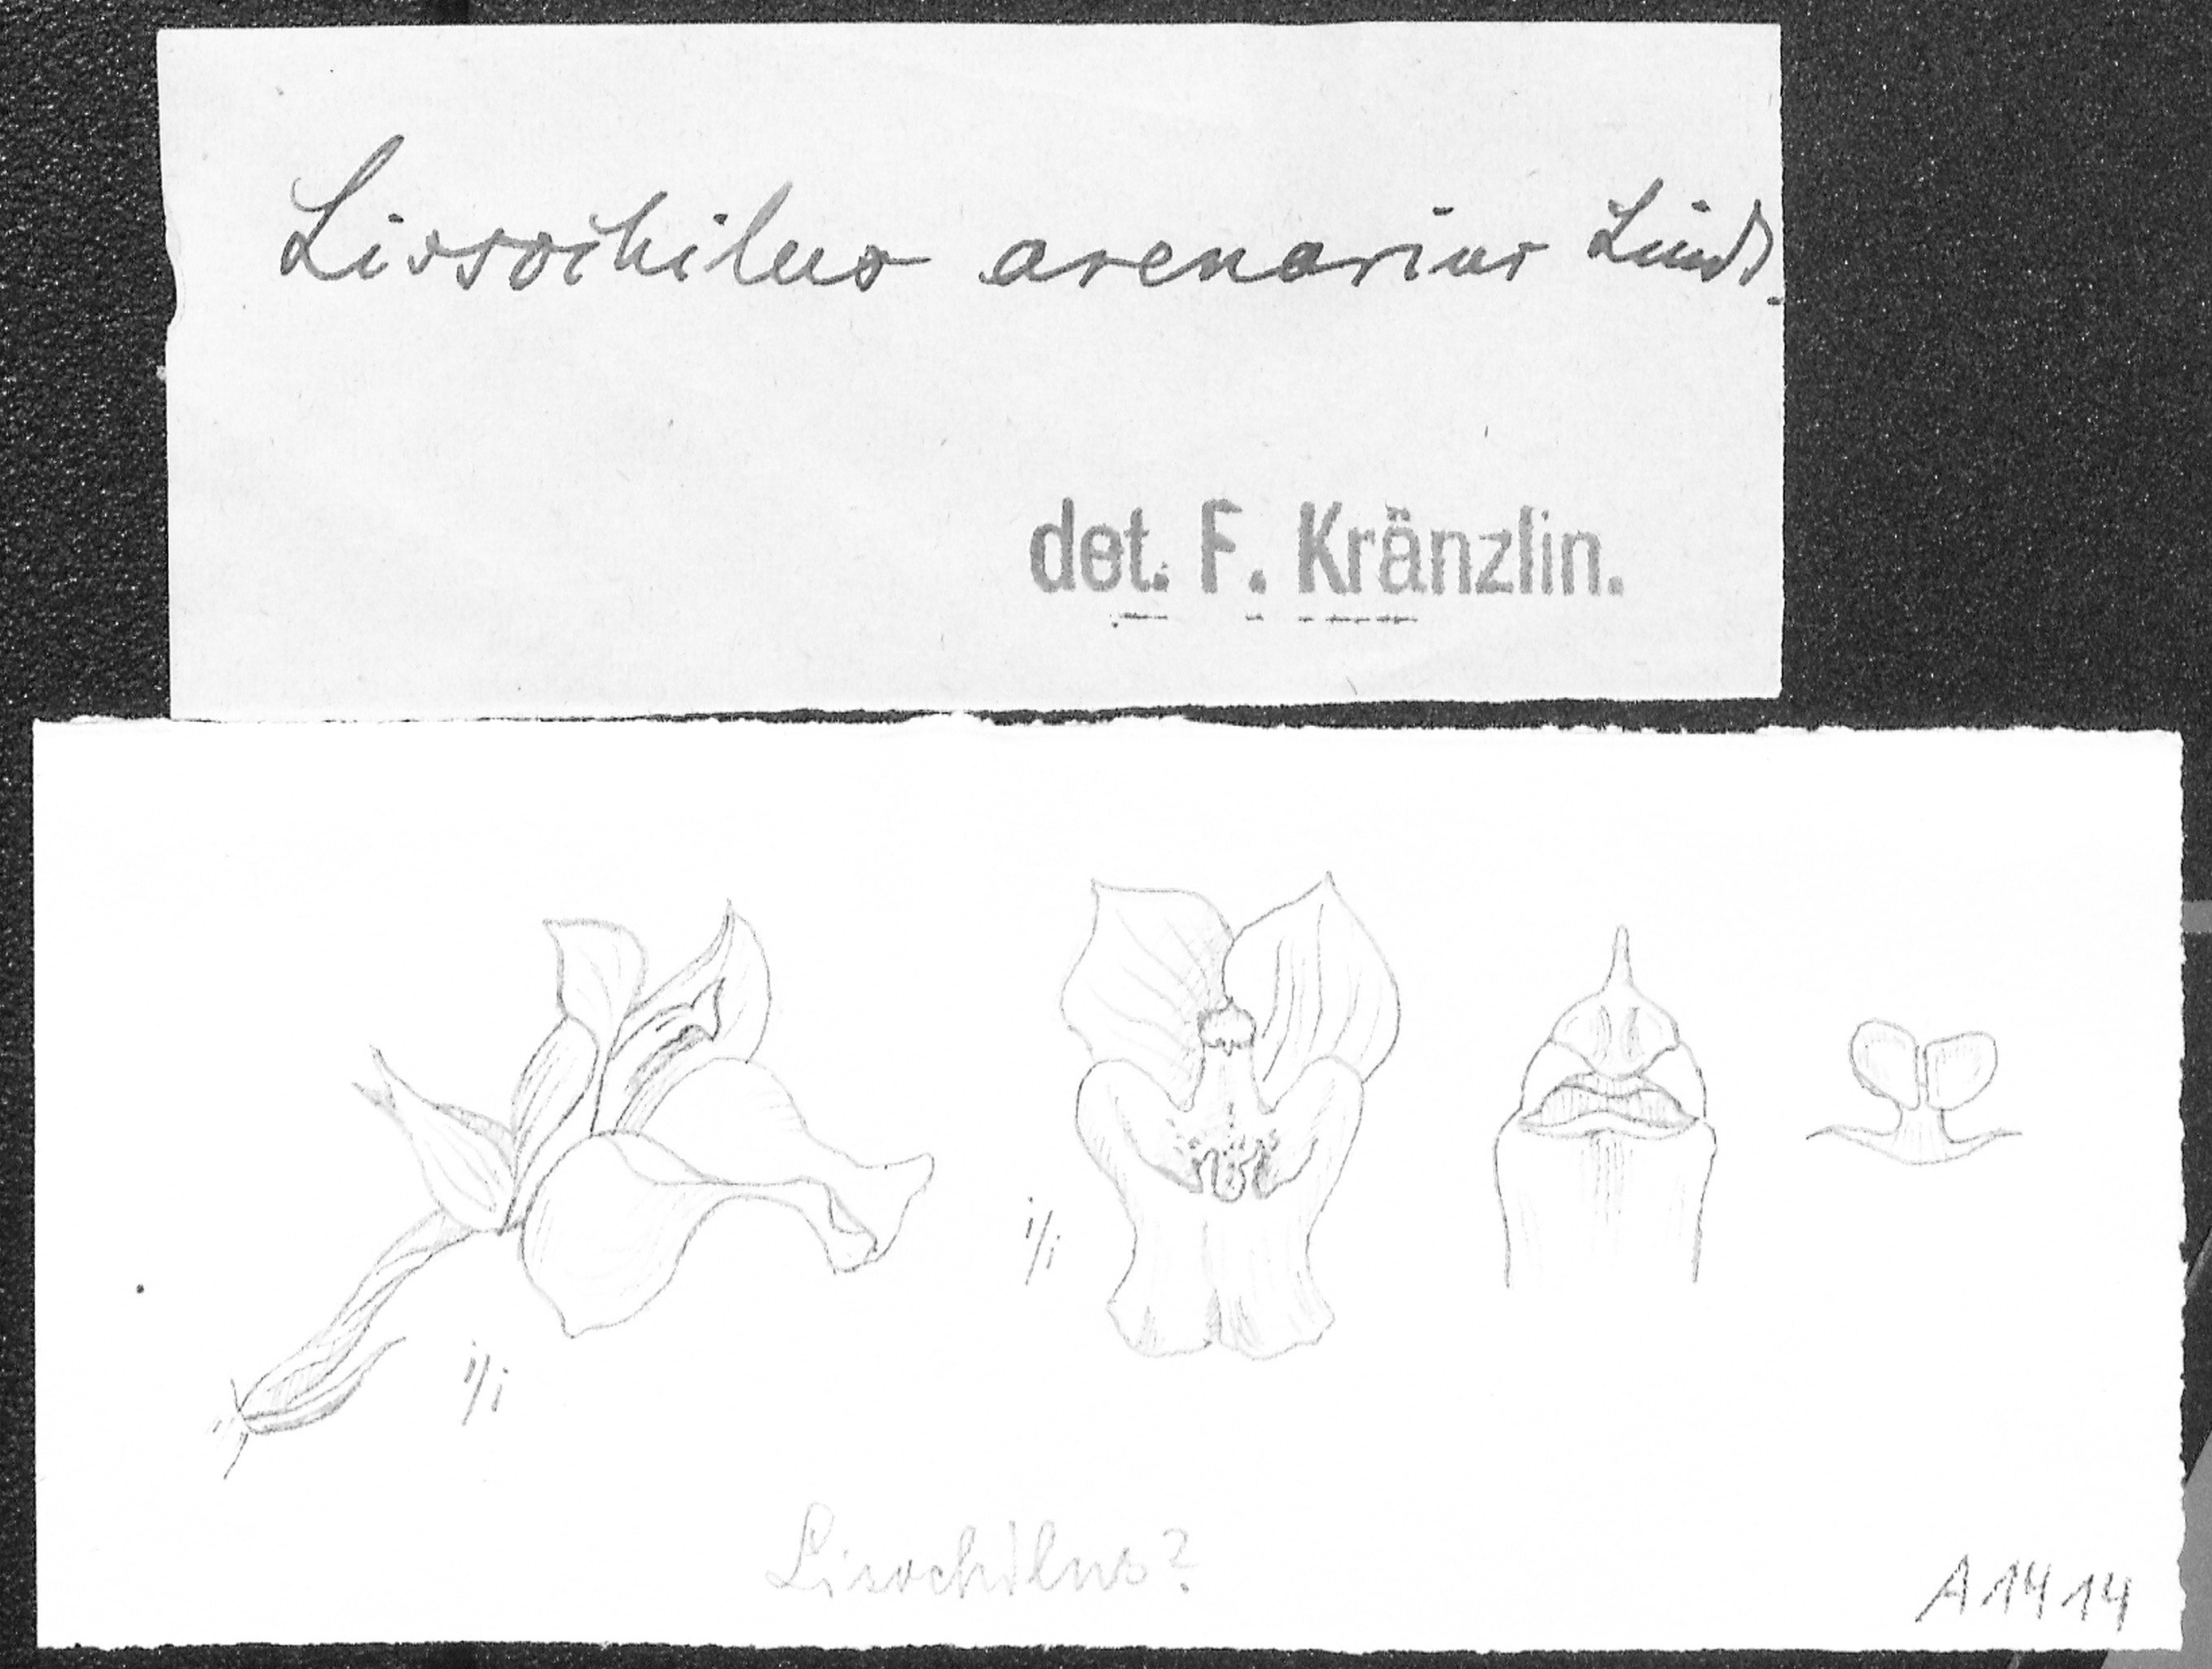 Lissochilus arenarius Lindl.
det. F. Kränzlin.
1/1
1/1
Lissochilus?
A1414